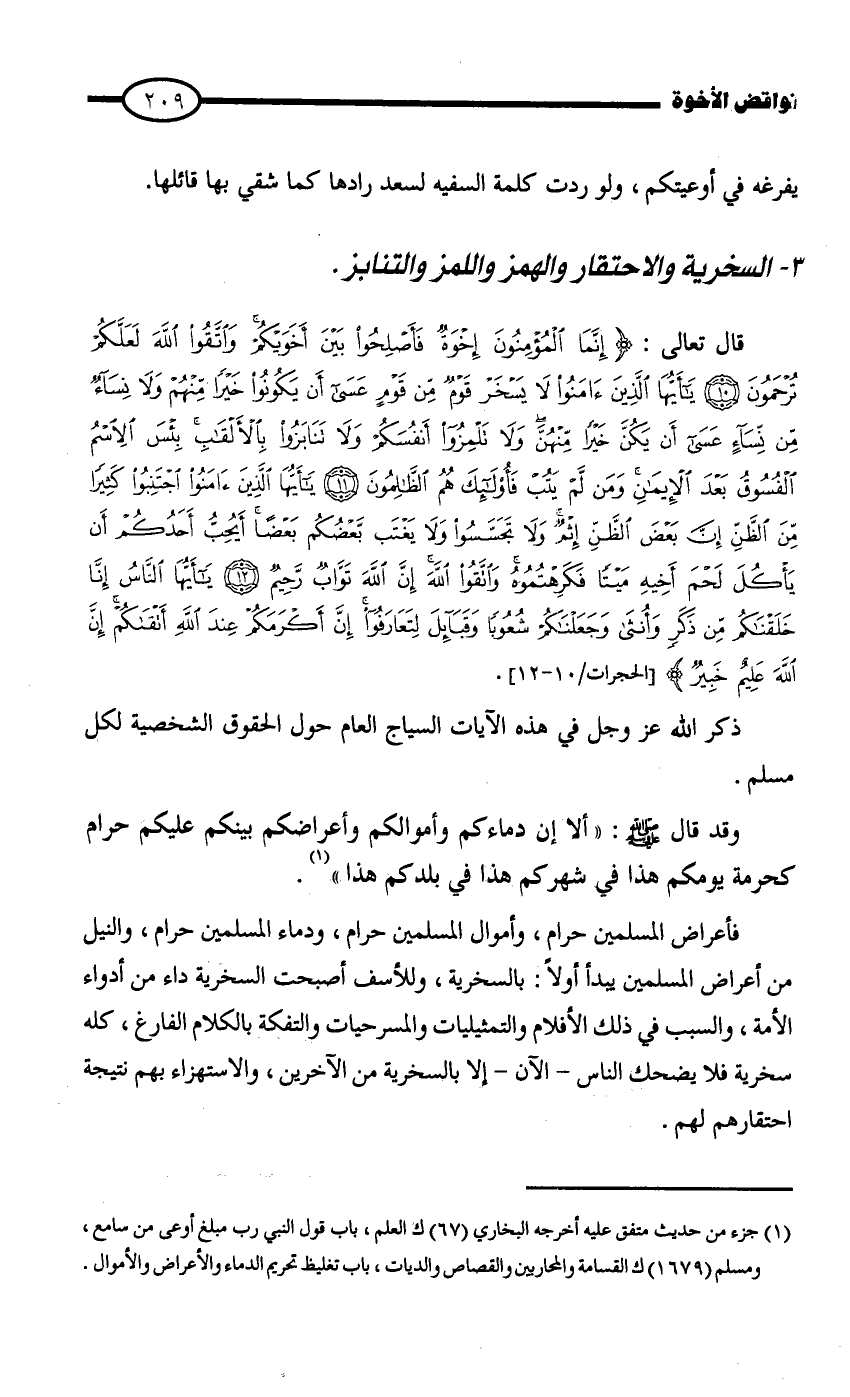 نواقض الأخوة ٢٠٩
يفرغه في أوعيتكم ، ولو ردت كلمة السفيه لسعد رادها كما شقي بها قائلها.
٣- السخرية والاحتقار والهمز واللمز والتنابز .
قال تعالى : ﴿ إِنَّمَا ٱلْمُؤْمِنُونَ إِخْوَةٌ فَأَصْلِحُوا۟ بَيْنَ أَخَوَيْكُمْ ۚ وَٱتَّقُوا۟ ٱللَّهَ لَعَلَّكُمْ
تُرْحَمُونَ ۝١٠ يَـٰٓأَيُّهَا ٱلَّذِينَ ءَامَنُوا۟ لَا يَسْخَرْ قَوْمٌ مِّن قَوْمٍ عَسَىٰٓ أَن يَكُونُوا۟ خَيْرًا مِّنْهُمْ وَلَا نِسَآءٌ
مِّن نِّسَآءٍ عَسَىٰٓ أَن يَكُنَّ خَيْرًا مِّنْهُنَّ ۖ وَلَا تَلْمِزُوٓا۟ أَنفُسَكُمْ وَلَا تَنَابَزُوا۟ بِٱلْأَلْقَـٰبِ ۖ بِئْسَ ٱلِٱسْمُ
ٱلْفُسُوقُ بَعْدَ ٱلْإِيمَـٰنِ ۚ وَمَن لَّمْ يَتُبْ فَأُو۟لَـٰٓئِكَ هُمُ ٱلظَّـٰلِمُونَ ۝١١ يَـٰٓأَيُّهَا ٱلَّذِينَ ءَامَنُوا۟ ٱجْتَنِبُوا۟ كَثِيرًا
مِّنَ ٱلظَّنِّ إِنَّ بَعْضَ ٱلظَّنِّ إِثْمٌ ۖ وَلَا تَجَسَّسُوا۟ وَلَا يَغْتَب بَّعْضُكُم بَعْضًا ۚ أَيُحِبُّ أَحَدُكُمْ أَن
يَأْكُلَ لَحْمَ أَخِيهِ مَيْتًا فَكَرِهْتُمُوهُ ۚ وَٱتَّقُوا۟ ٱللَّهَ ۚ إِنَّ ٱللَّهَ تَوَّابٌ رَّحِيمٌ ۝١٢ يَـٰٓأَيُّهَا ٱلنَّاسُ إِنَّا
خَلَقْنَـٰكُم مِّن ذَكَرٍ وَأُنثَىٰ وَجَعَلْنَـٰكُمْ شُعُوبًا وَقَبَآئِلَ لِتَعَارَفُوٓا۟ ۚ إِنَّ أَكْرَمَكُمْ عِندَ ٱللَّهِ أَتْقَىٰكُمْ ۚ إِنَّ
ٱللَّهَ عَلِيمٌ خَبِيرٌ ﴾ [الحجرات/١٠-١٢] .
ذكر الله عز وجل في هذه الآيات السياج العام حول الحقوق الشخصية لكل
مسلم .
وقد قال ﷺ : « ألا إن دماءكم وأموالكم وأعراضكم بينكم عليكم حرام
كحرمة يومكم هذا في شهركم هذا في بلدكم هذا »(١) .
فأعراض المسلمين حرام ، وأموال المسلمين حرام ، ودماء المسلمين حرام ، والنيل
من أعراض المسلمين يبدأ أولاً : بالسخرية ، وللأسف أصبحت السخرية داء من أدواء
الأمة ، والسبب في ذلك الأفلام والتمثيليات والمسرحيات والتفكة بالكلام الفارغ ، كله
سخرية فلا يضحك الناس - الآن - إلا بالسخرية من الآخرين ، والاستهزاء بهم نتيجة
احتقارهم لهم .
(١) جزء من حديث متفق عليه أخرجه البخاري (٦٧) ك العلم ، باب قول النبي رب مبلغ أوعى من سامع ،
ومسلم (١٦٧٩) ك القسامة والمحاربين والقصاص والديات ، باب تغليظ تحريم الدماء والأعراض والأموال .